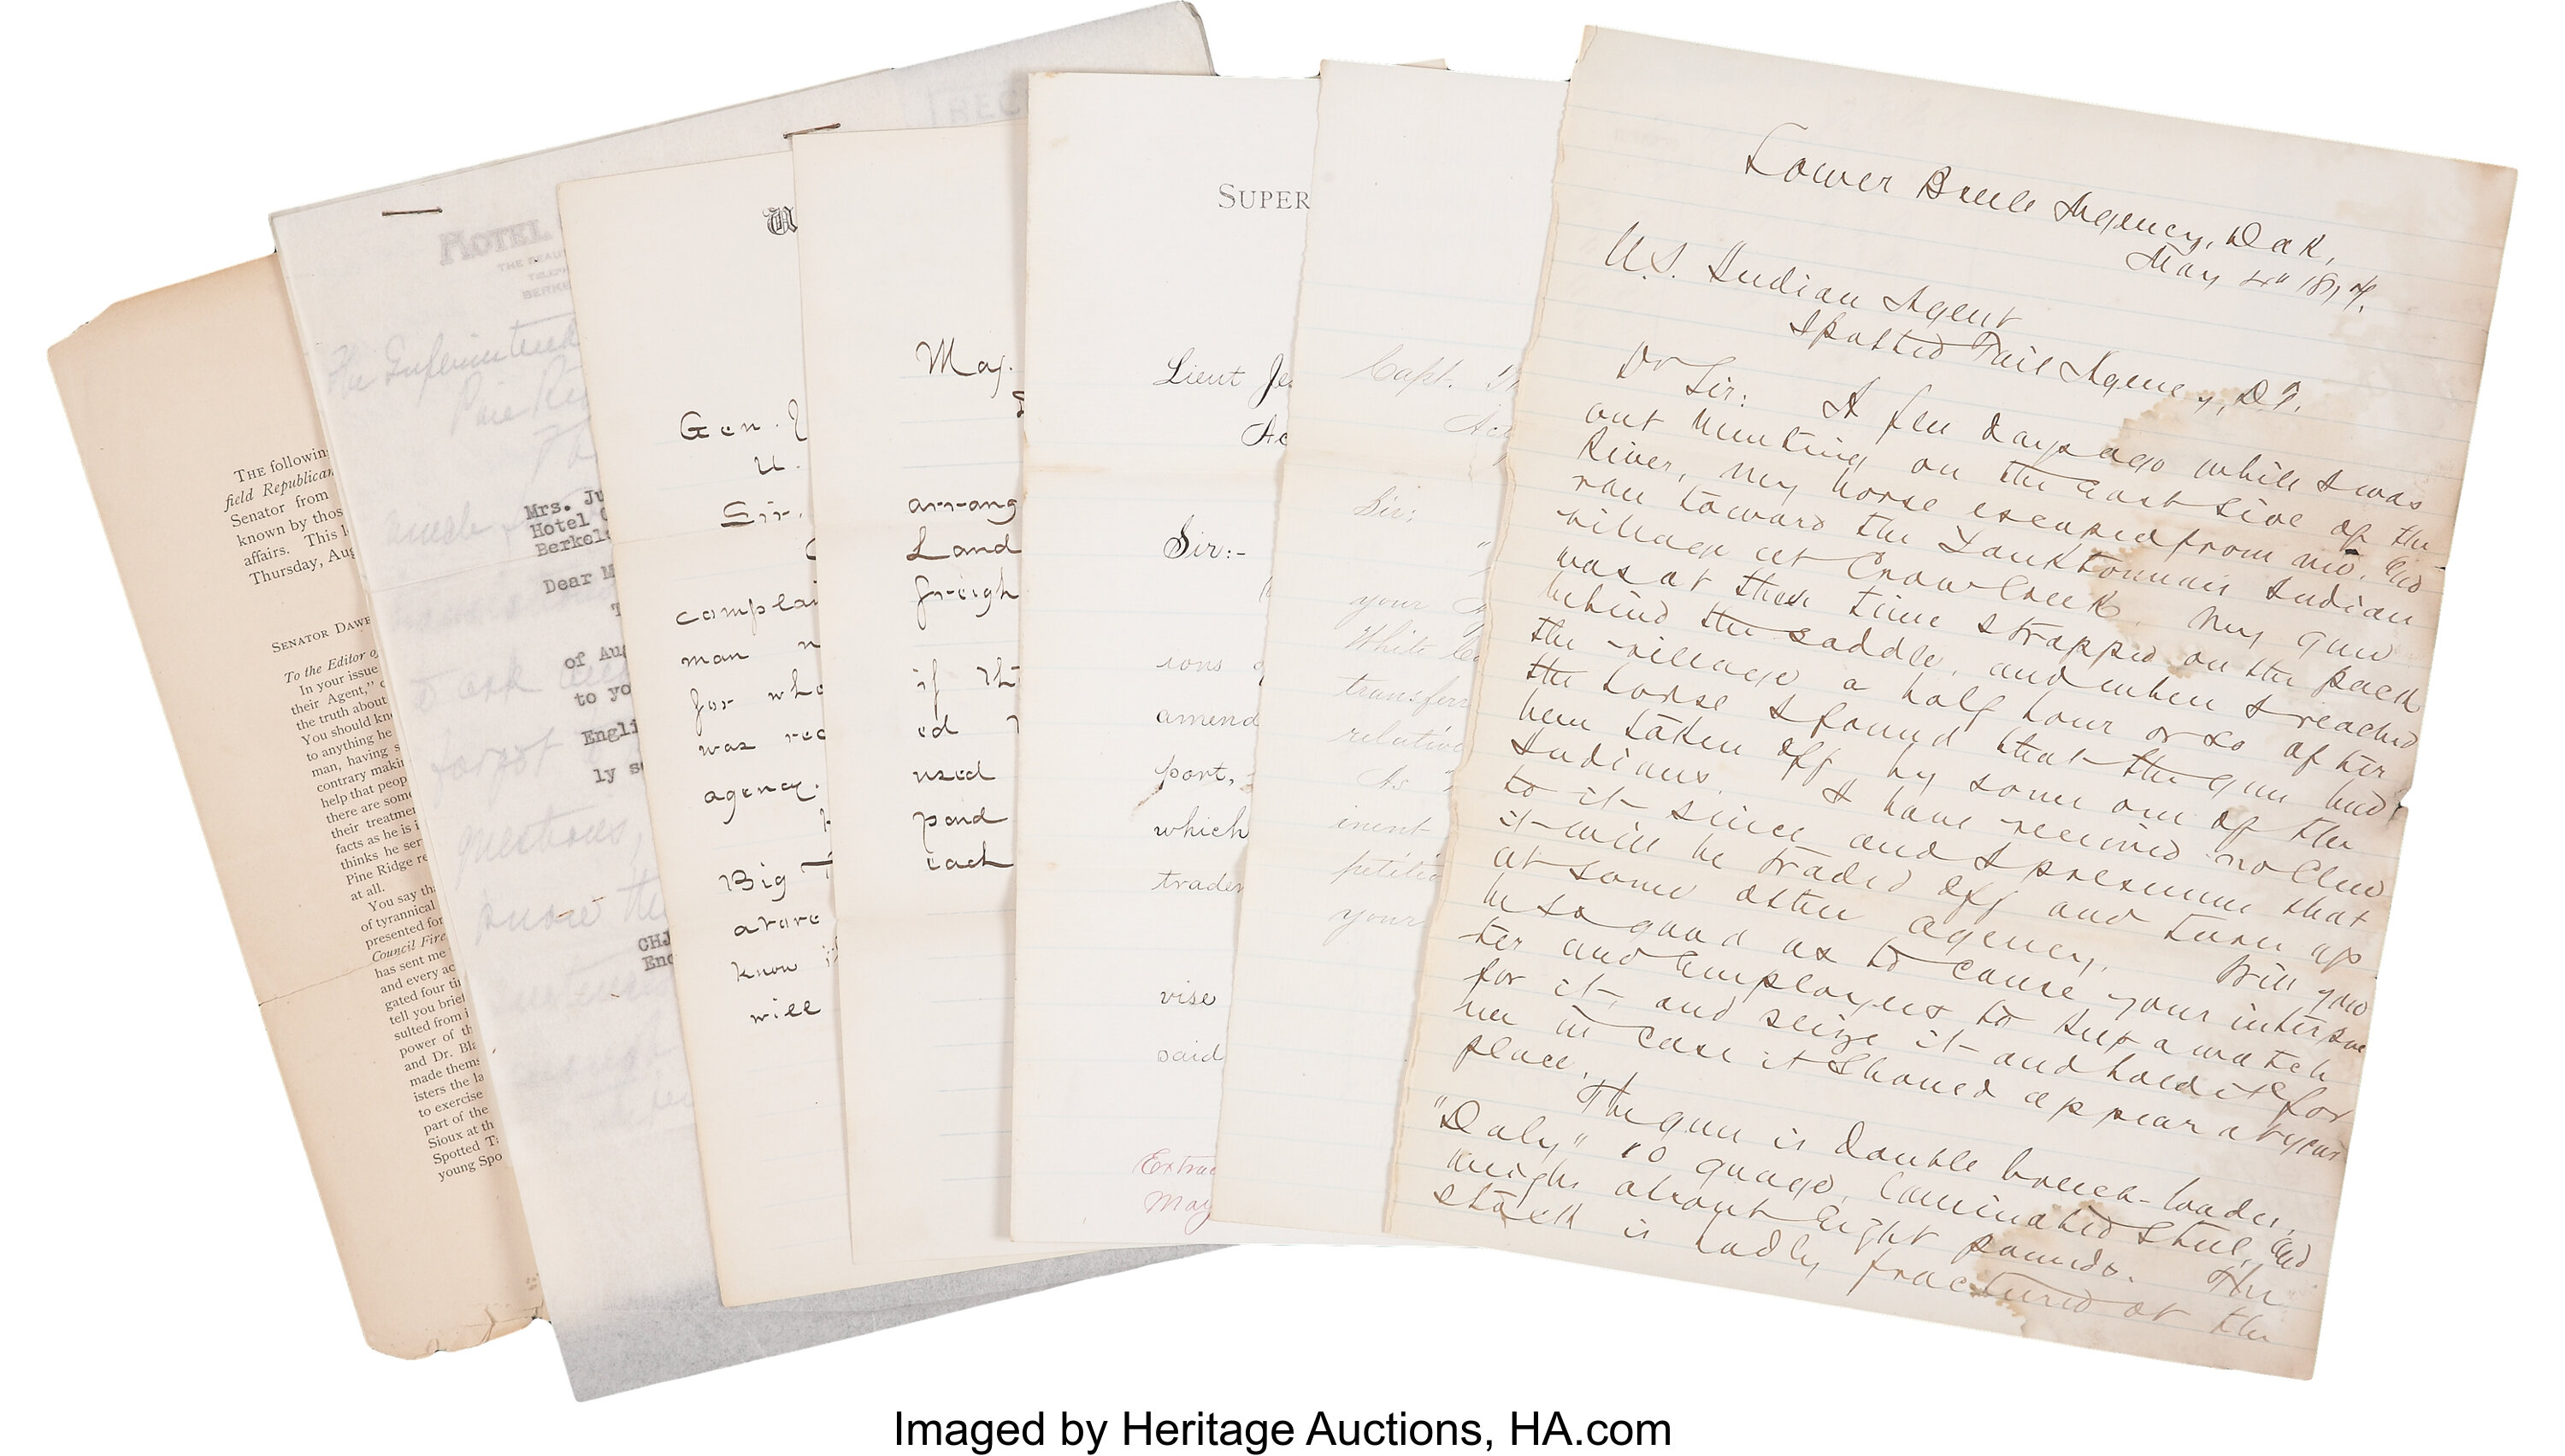 THE followin
field Republican
Senator from
known by thos
affairs. This l
Thursday, Aug
SENATOR DAWE
To the Editor of
In your issue
their Agent," c
the truth about
You should kn
to anything he
man, having s
contrary makin
help that peop
there are some
their treatmen
facts as he is i
thinks he ser
Pine Ridge re
at all.
You say tha
of tyrannical
presented for
Council Fire
has sent me
and every ac
gated four tin
tell you brief
sulted from i
power of th
and Dr. Bla
made thems
isters the la
to exercise
part of the
Sioux at th
Spotted T
young Spo
HOTEL
THE BEAU
TELEPH
BERKE
The Superintend
Pine Rid
Mrs. Ju
Hotel C
Berkele
Dear M
T
of Aug
to yo
Engli
ly s
to ask
forgot
questions,
know the
CHJ
Enc
REC
U
Gen.
U.
Sir.
complai
man n
for who
was rec
agency.
Big T
above
know i
will
Maj.
arrang
Land
freigh
if th
ed
used
paid
each
SUPER
Lieut Je
Ac
Sir:-
ions o
amend
port,
which
trader
vise
said
Extrac
May
Capt.
Act
Sir;
your
White
transferr
relative
As
inent
petitio
your
Lower Brule Agency, Dak,
May 4" 1874.
U.S. Indian Agent
Spotted Tail Agency, D.T.
Dr Sir: A few days ago while I was
out hunting on the east side of the
River, my horse escaped from me, and
ran toward the Yanktonnais Indian
village at Crow Creek. My gun
was at the time strapped on the pack
behind the saddle, and when I reached
the village a half hour or so after
the horse I found that the gun had
been taken off by some one of the
Indians. I have received no clew
to it since and I presume that
it will be traded off and turn up
at some other agency. Will you
be so good as to cause your interpre
ter and employees to keep a watch
for it, and seize it and hold it for
me in case it should appear at your
place.
The gun is double breech-loader,
"Daly" 10 guage, laminated steel, and
weighs about eight pounds. The
stock is badly fractured at the
Imaged by Heritage Auctions, HA.com